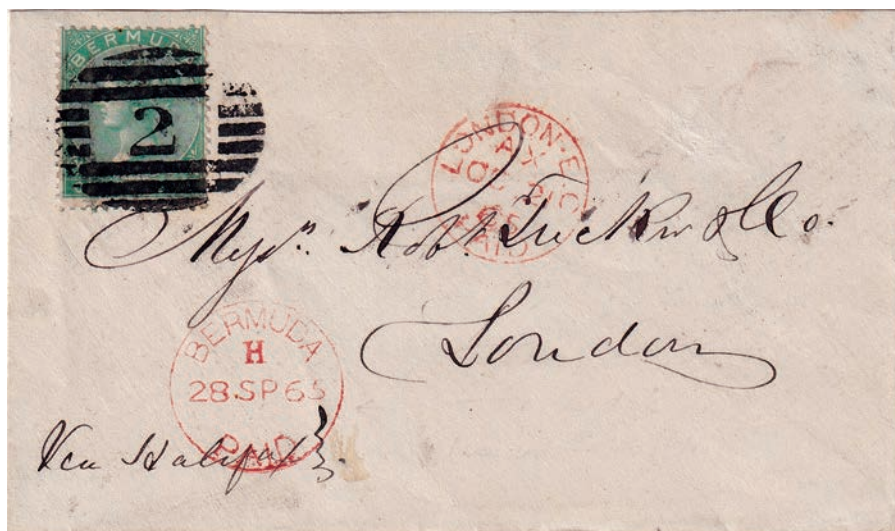 BERMUDA
2
LONDON·E.C
AX
OC 
65
PAID
Mess.rs Robt Tucker & Co.
London
BERMUDA
H
28.SP65
PAID
Via Halifax